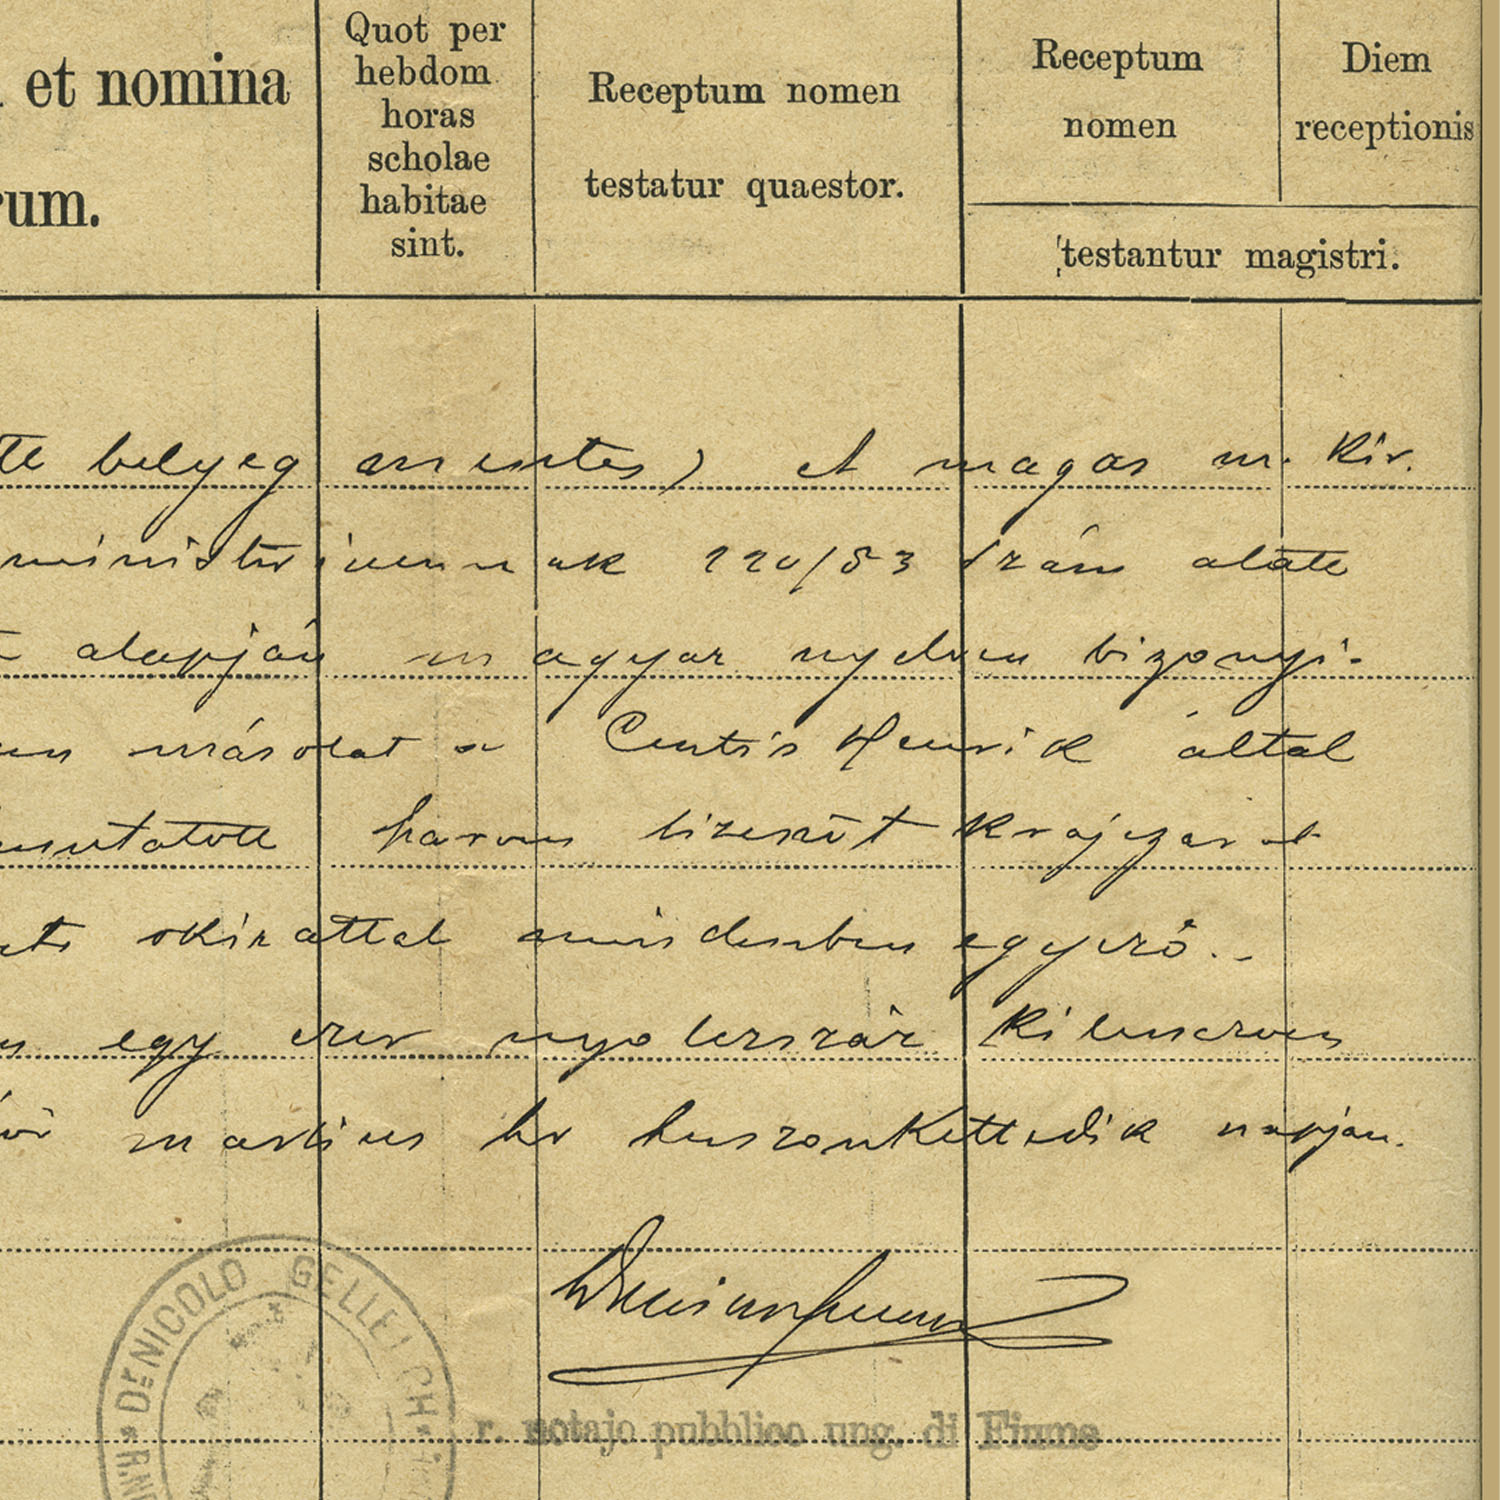 et nomina
rum.
Quot per
hebdom
horas
scholae
habitae
sint.
Receptum nomen
testatur quaestor.
Receptum
nomen
Diem
receptionis
testantur magistri.
belyeg mentes) A magas m. Kir.
ministeriumnak /83 szám alatt
alapján magyar nyelven bizonyi-
másolat a Henrik által
mutatott három tizenöt krajczár
okirattal mindenben egyező.-
egy ezer nyolczszáz kilenczven
martius hó huszonkettedik napján.
Dr. NICOLO GELLETICH
r. notajo pubblico ung. di Fiume